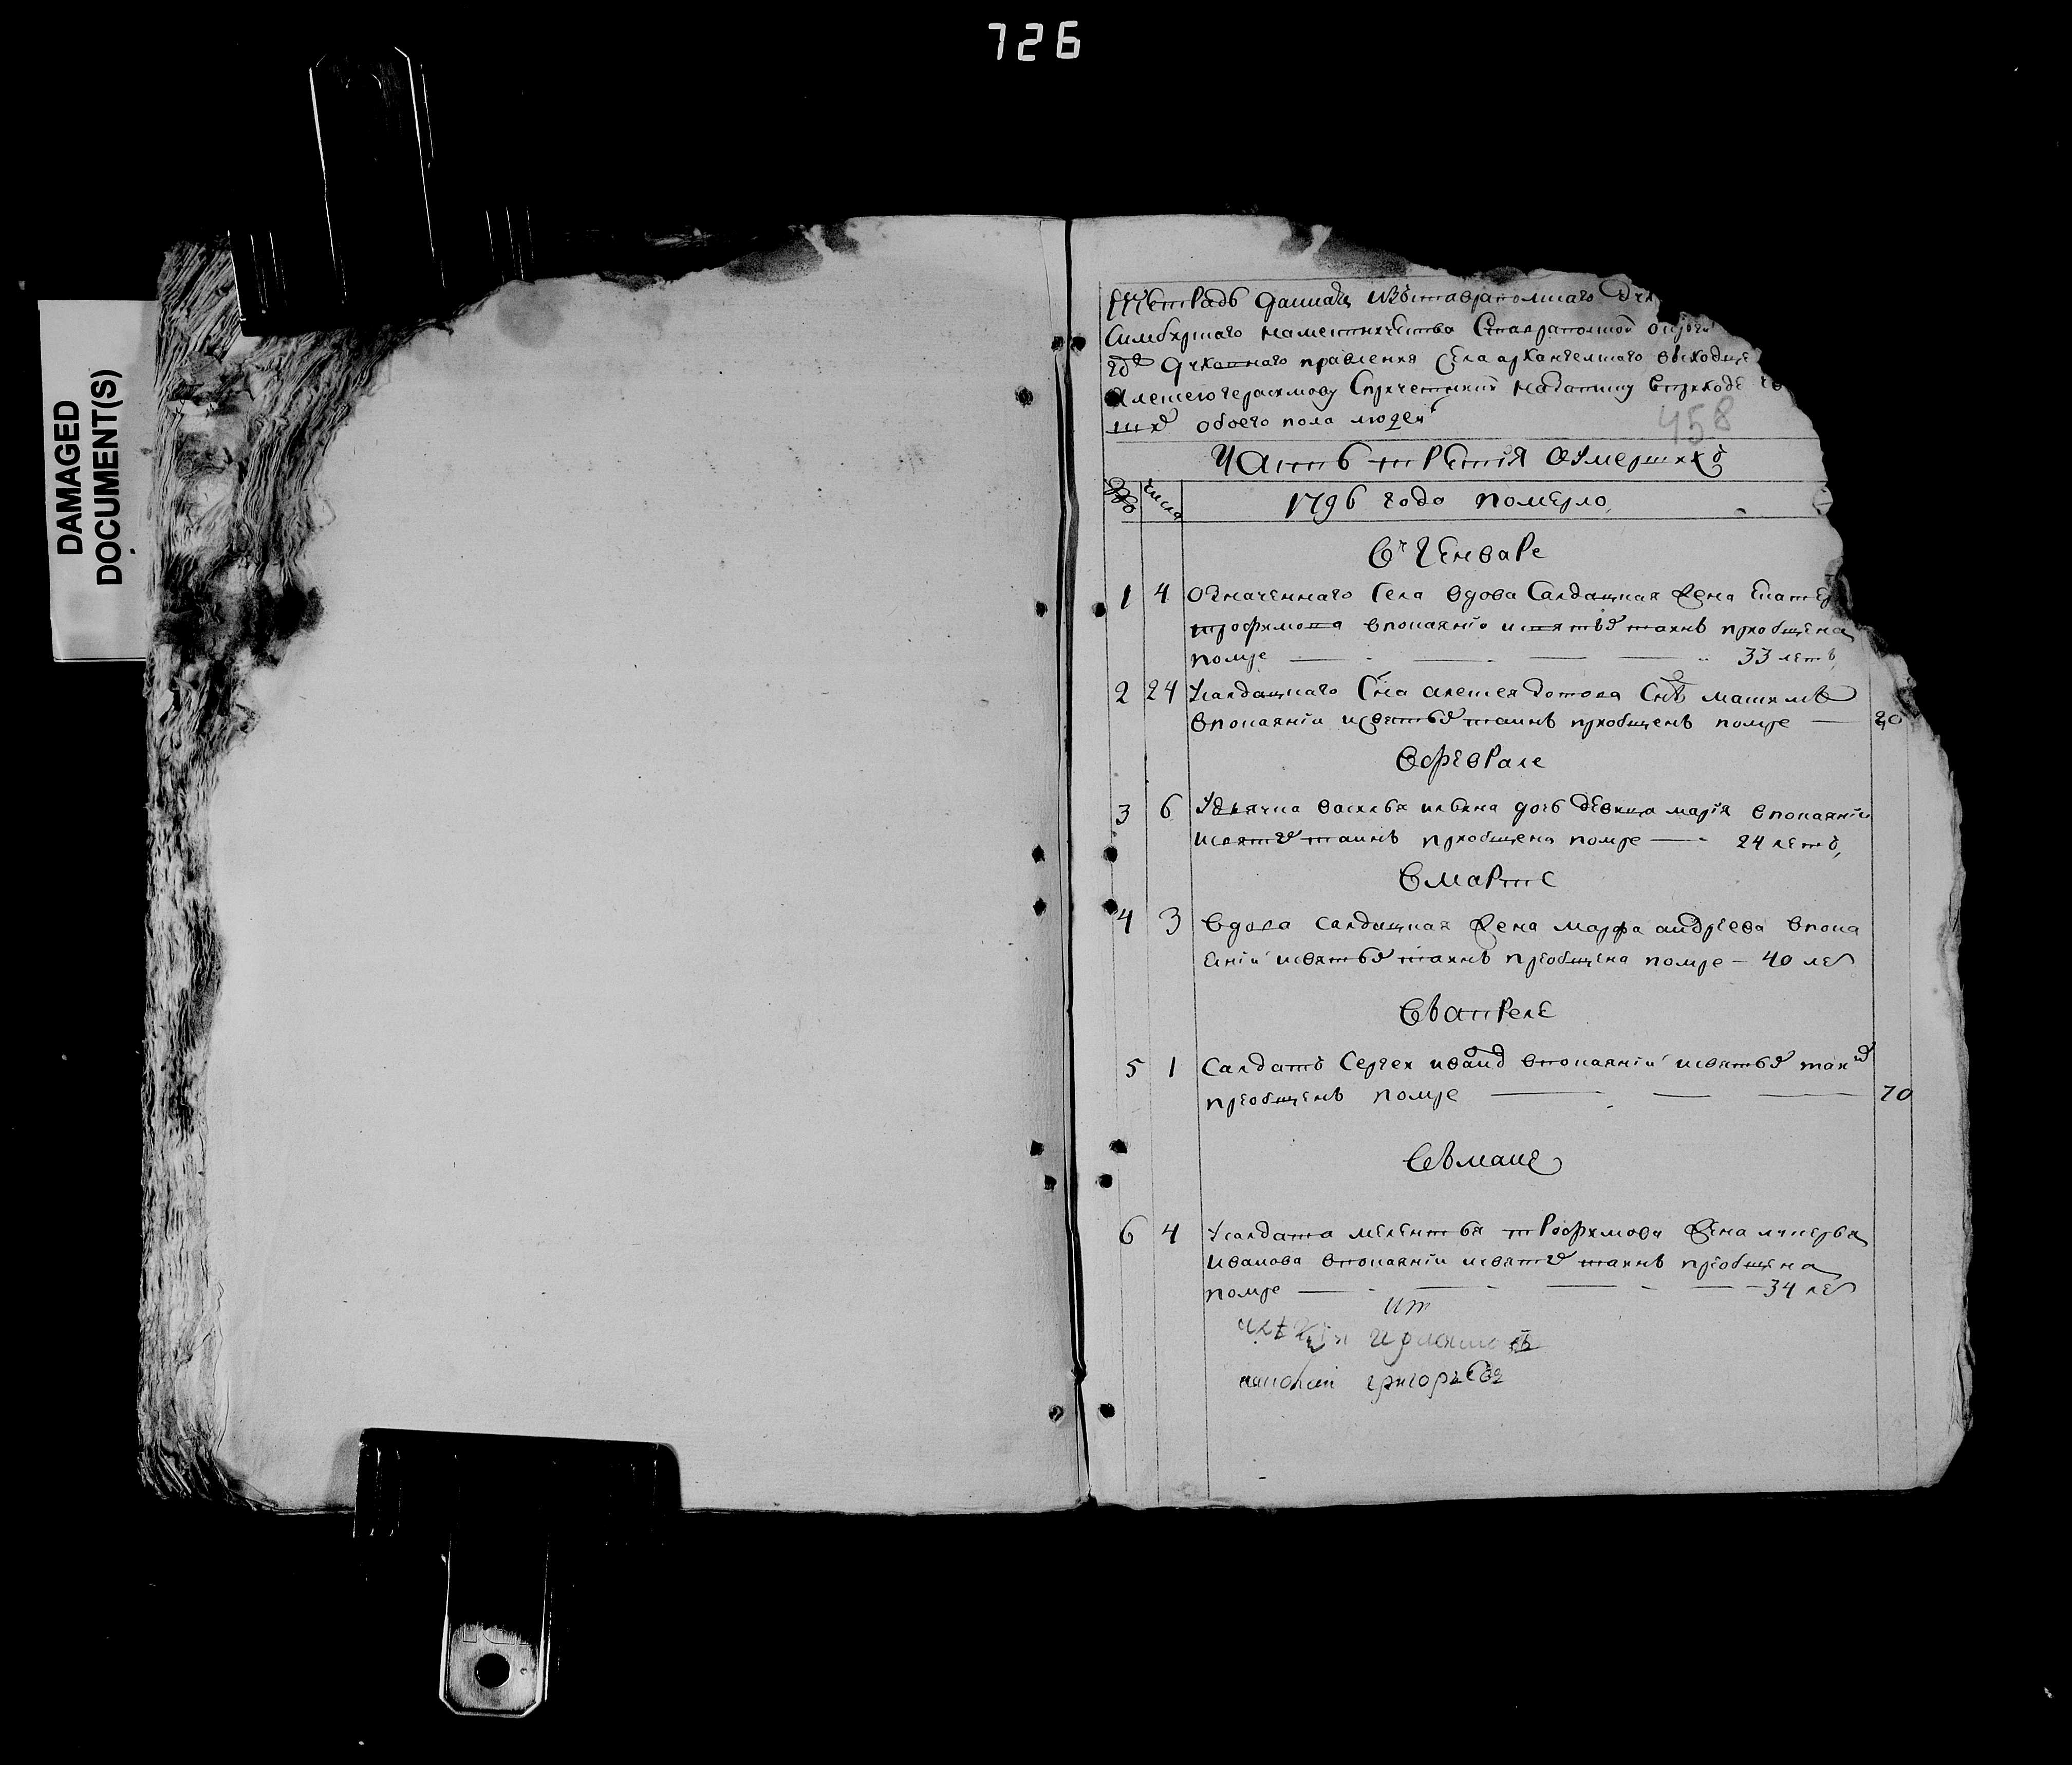 726
DAMAGED
DOCUMENT(S)
Тетрадь данная изставрополскаго дух
Симбирскаго наместничества Ставрополской округи
духовнаго правления села архангелскаго
алексею герасимову спричетники
обоего пола людей
458
Часть третія оумерших
№ числа
1796 года померло,
въ Генваре
1 4 означеннаго села вдова салдацкая жена Екатер
трофимова впокаяніи исвятых таинъ приобщена
помре 33 летъ,
2 24 Усалдацкаго сна алексея сн Максимъ
впокаяніи исвятых таинъ приобщенъ помре 20
вфеврале
3 6 Удьячка василья ильина дочь девица марія впокаяніи
исвятых таинъ приобщена помре 24 летъ,
вмарте
4 3 вдова салдацкая жена марфа андреева впока
еніи исвятых таинъ преобщена помре 40 ле
въапреле
5 1 салдатъ Сергеи иванов впокаяніи исвятых таин
преобщенъ помре 70
въмаие
6 4 Усалдата мелентья трофимова жена лукерья
иванова впокаяніи исвятых таинъ преобщена
помре 34 ле
григорьевъ